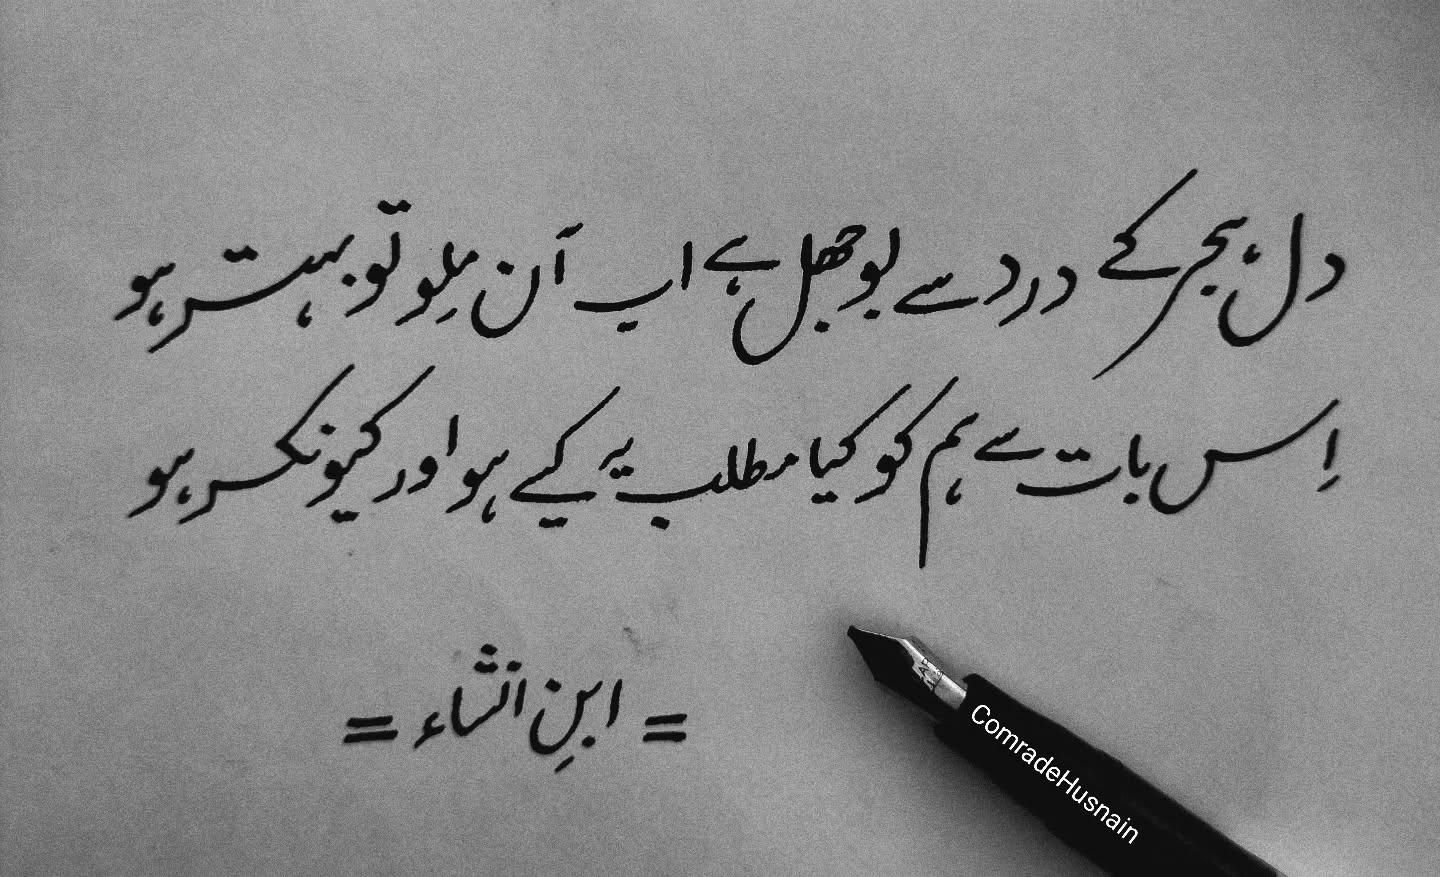 دل ہجر کے درد سے بوجھل ہے اب آن مِلو تو بہتر ہو
اِس بات سے ہم کو کیا مطلب یہ کیسے ہو اور کیونکر ہو
= ابنِ انشاء =
ComradeHusnain